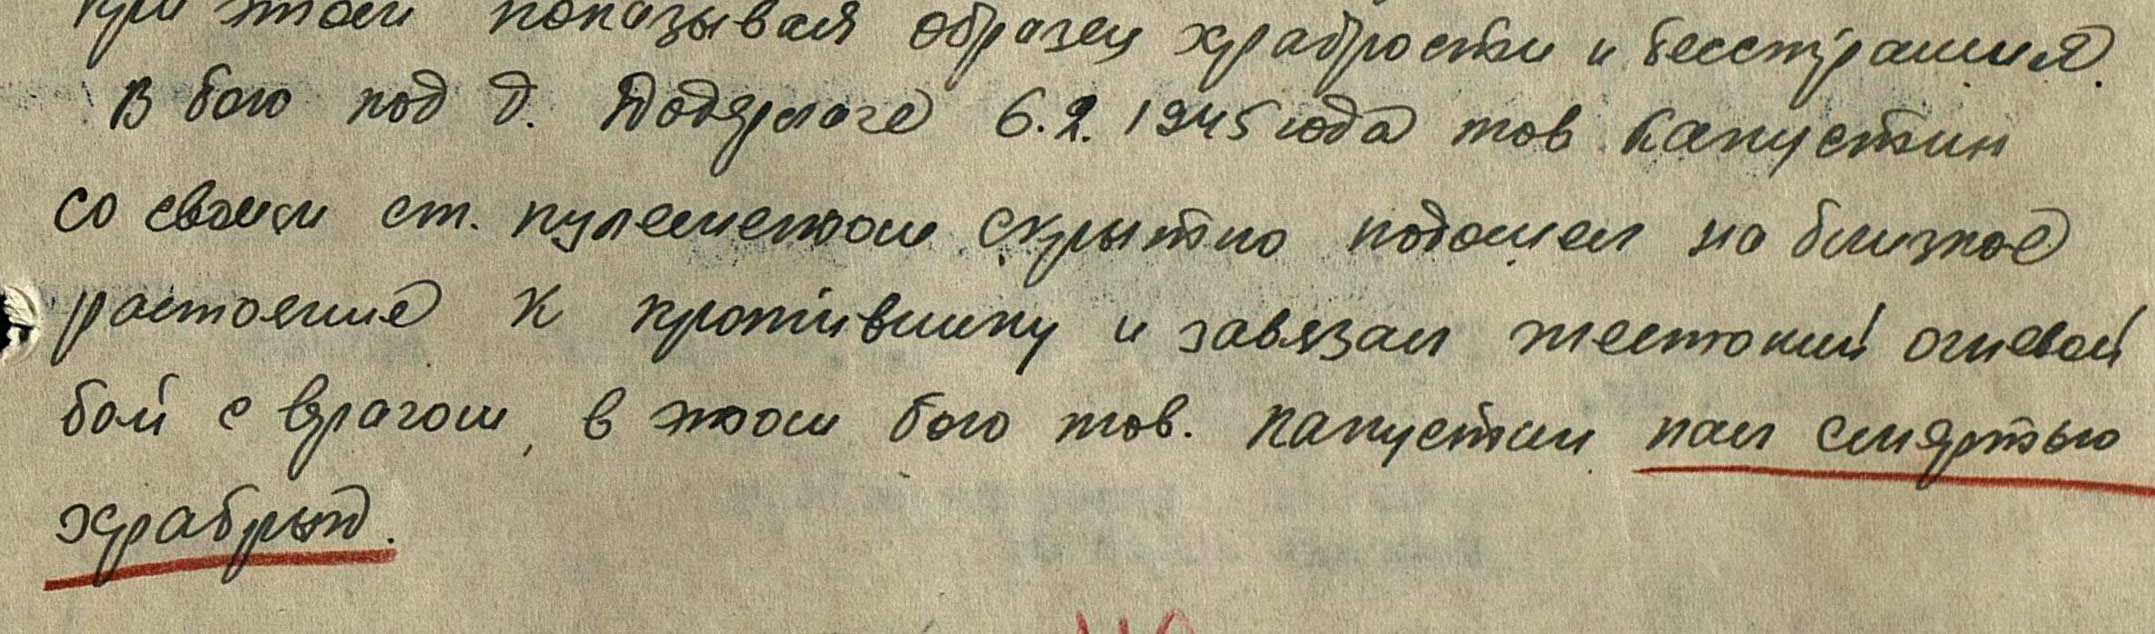 при этом показывая образец храбрости и бесстрашия.
В бою под д. 6.2.1945 года тов Капустин
со своим ст. пулеметом скрытно подошел на близкое
растояние к противнику и завязал жестокий огневой
бой с врагом, в этом бою тов. Капустин пал смертью
храбрых.